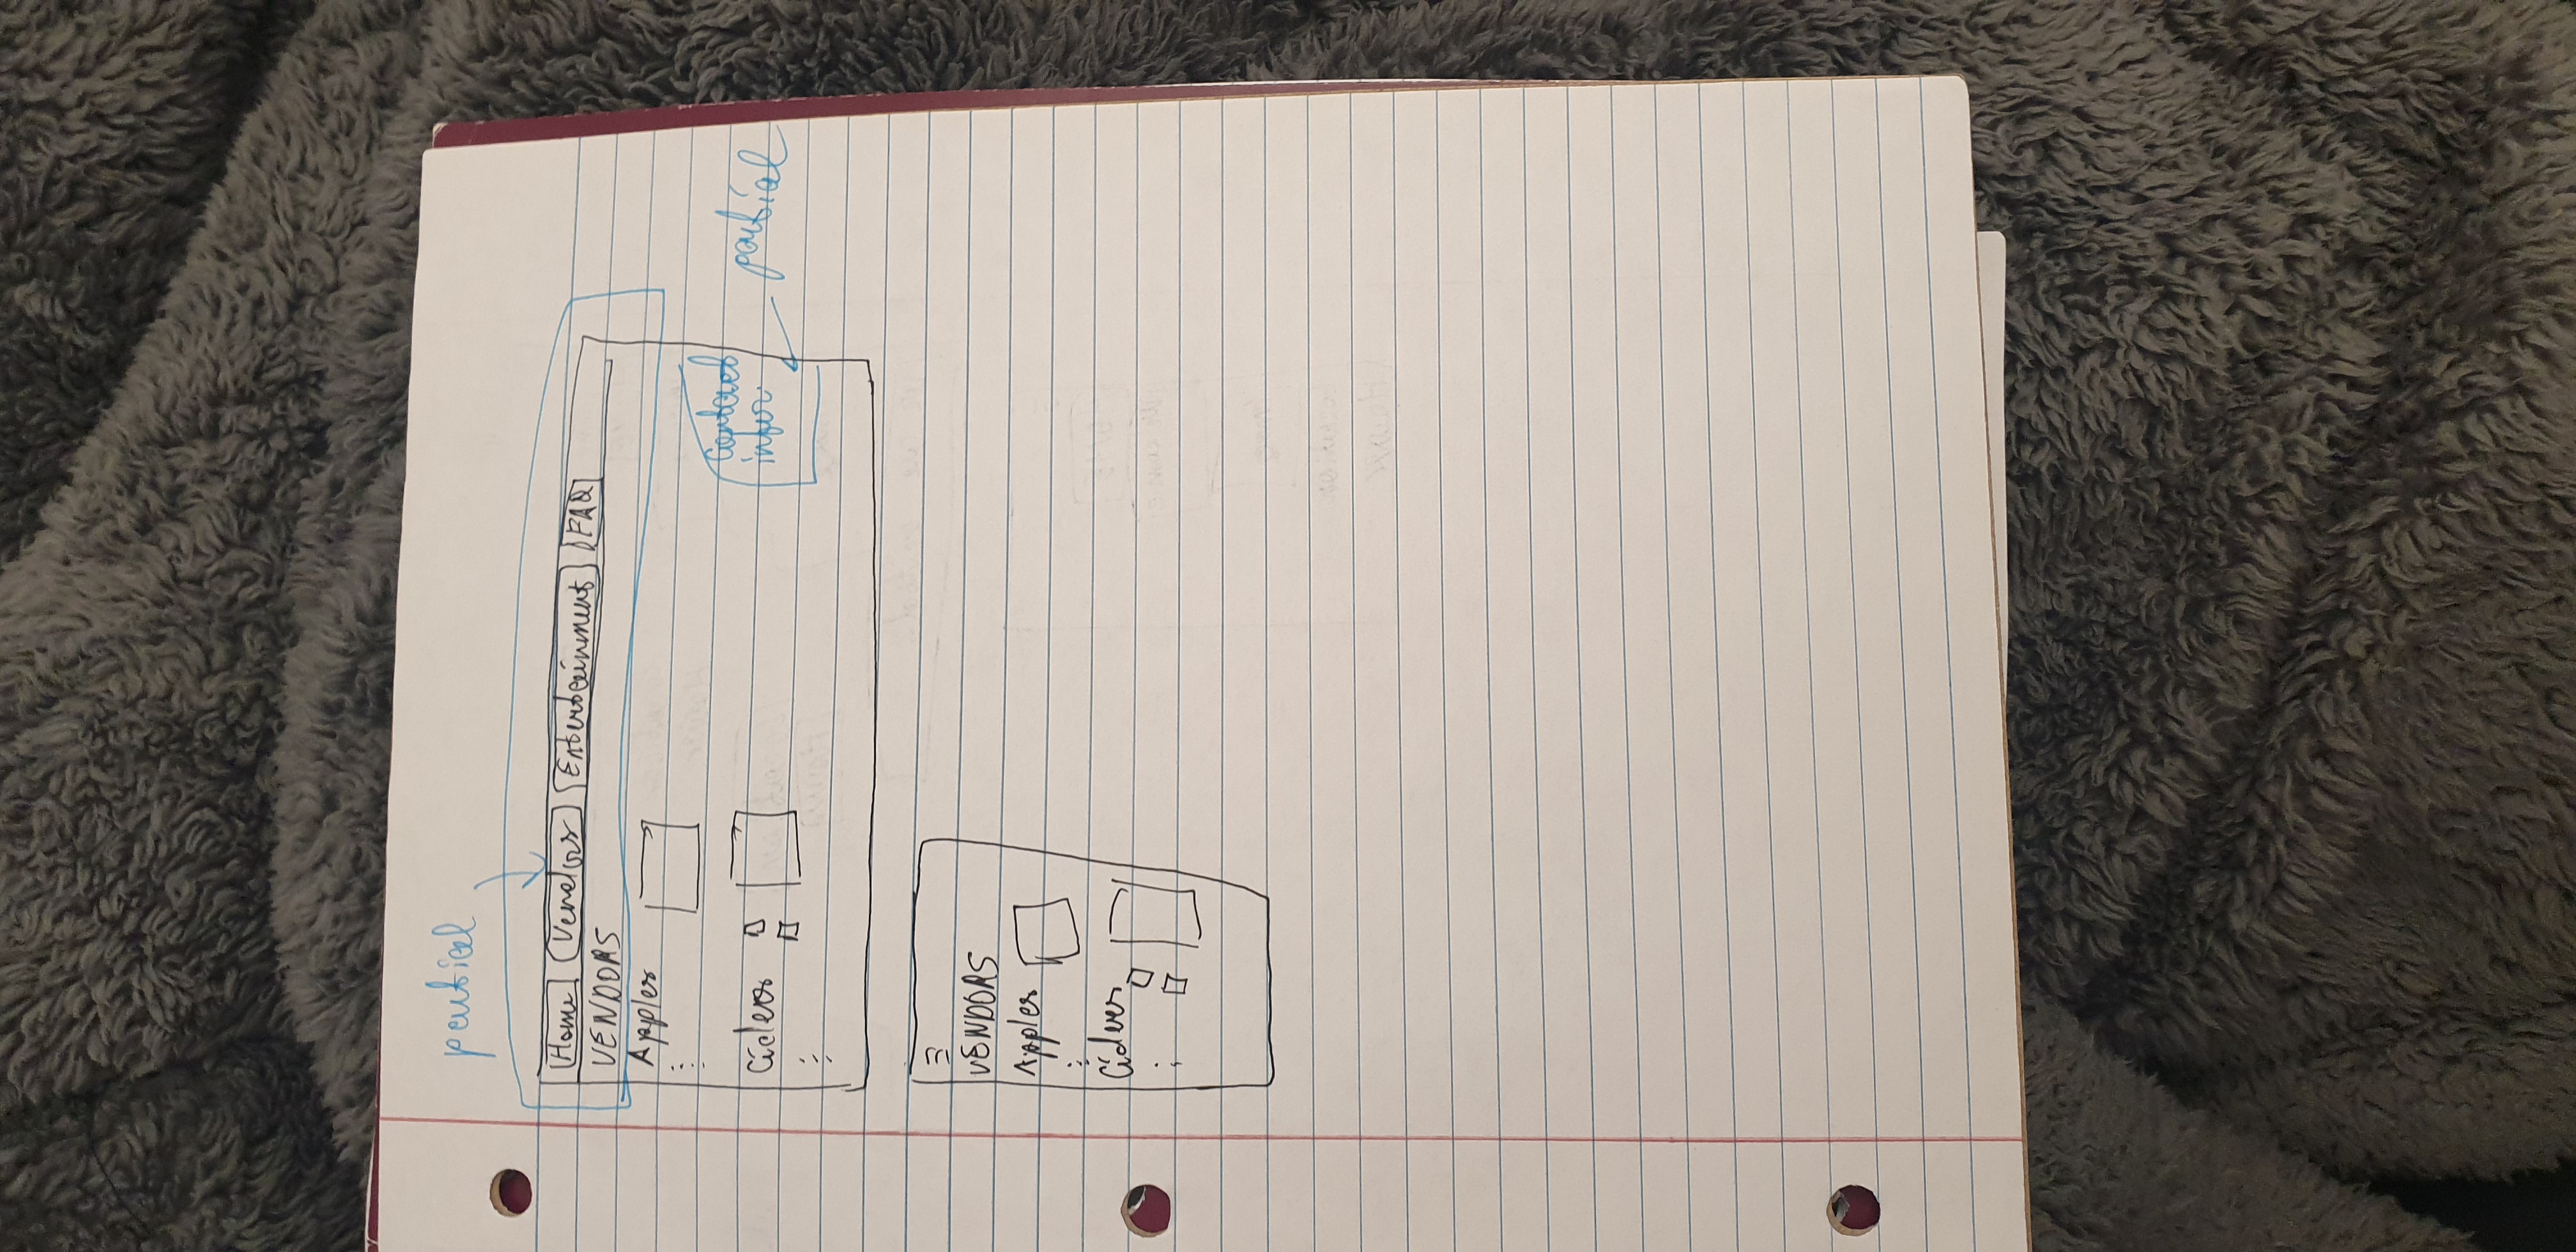 partial
Home Vendors Entertainment FAQ
VENDORS
Apples
Contact
infor.
partial
Ciders
VENDORS
Apples
Ciders